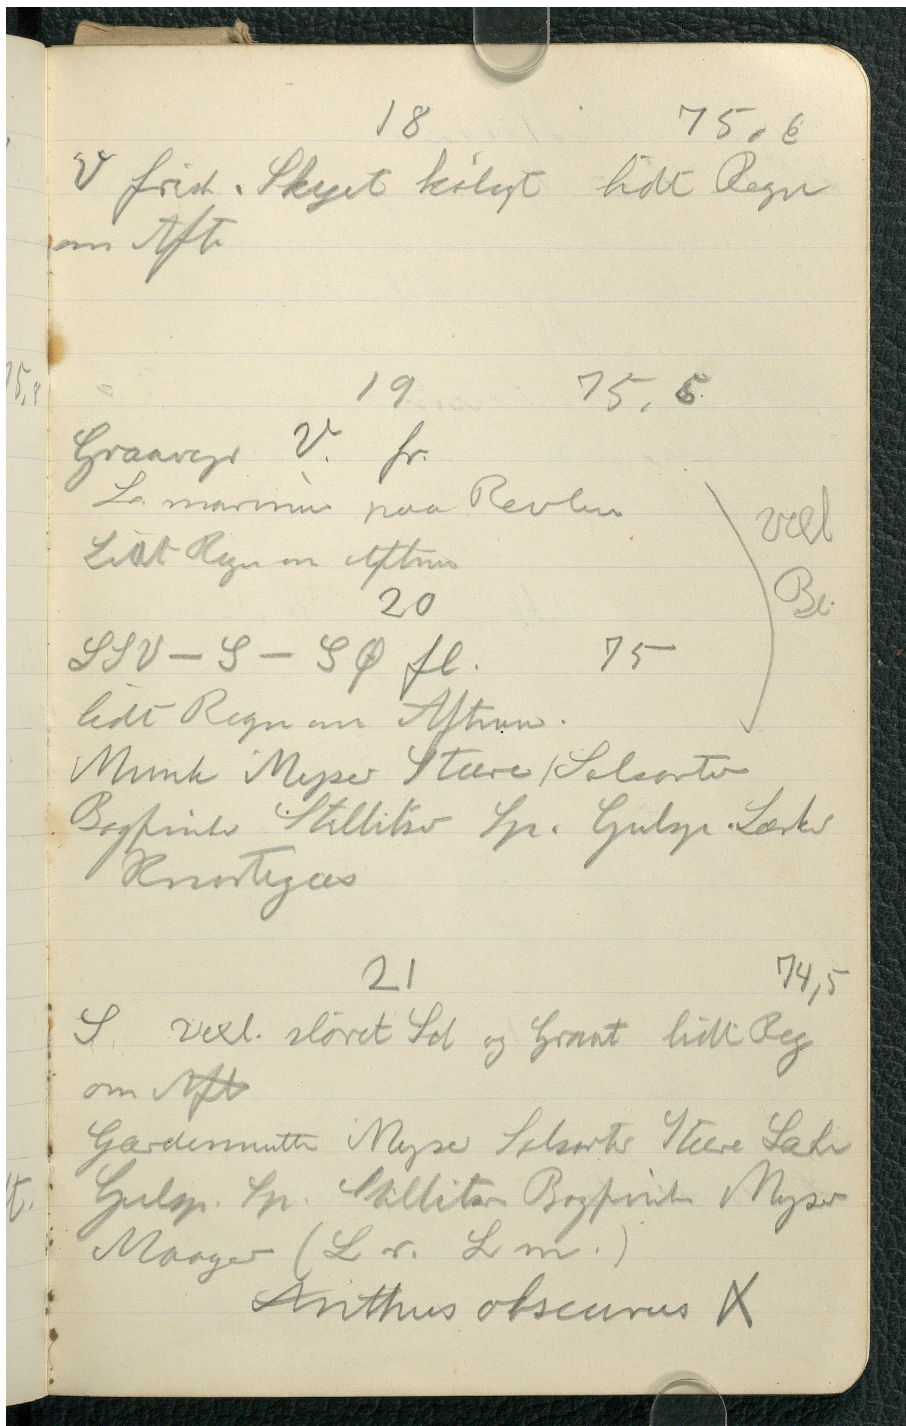 18 75,6
V frisk. Skyet køligt lidt Regn
om Aft
19 75,5
Graavejr V. fr.
La marinus paa Revlen
Lidt Regn om Aftnen
vexl
Be.
20
SSV - S - SØ fl. 75
lidt Regn om Aftnen.
Munk Mejser Stære Solsorte
Bogfinke Stillitser Sp. Gulsp. Lærker
Knortegæs
21 74,5
S. vexl. sløret Sol og Graat lidt Reg
om Aft
Gærdesmutte Mejser Solsorte Stære Lærke
Gulsp. Sp. Stillitser Bogfinke Mejser
Maager (L r. L m.)
Anthus obscurus X